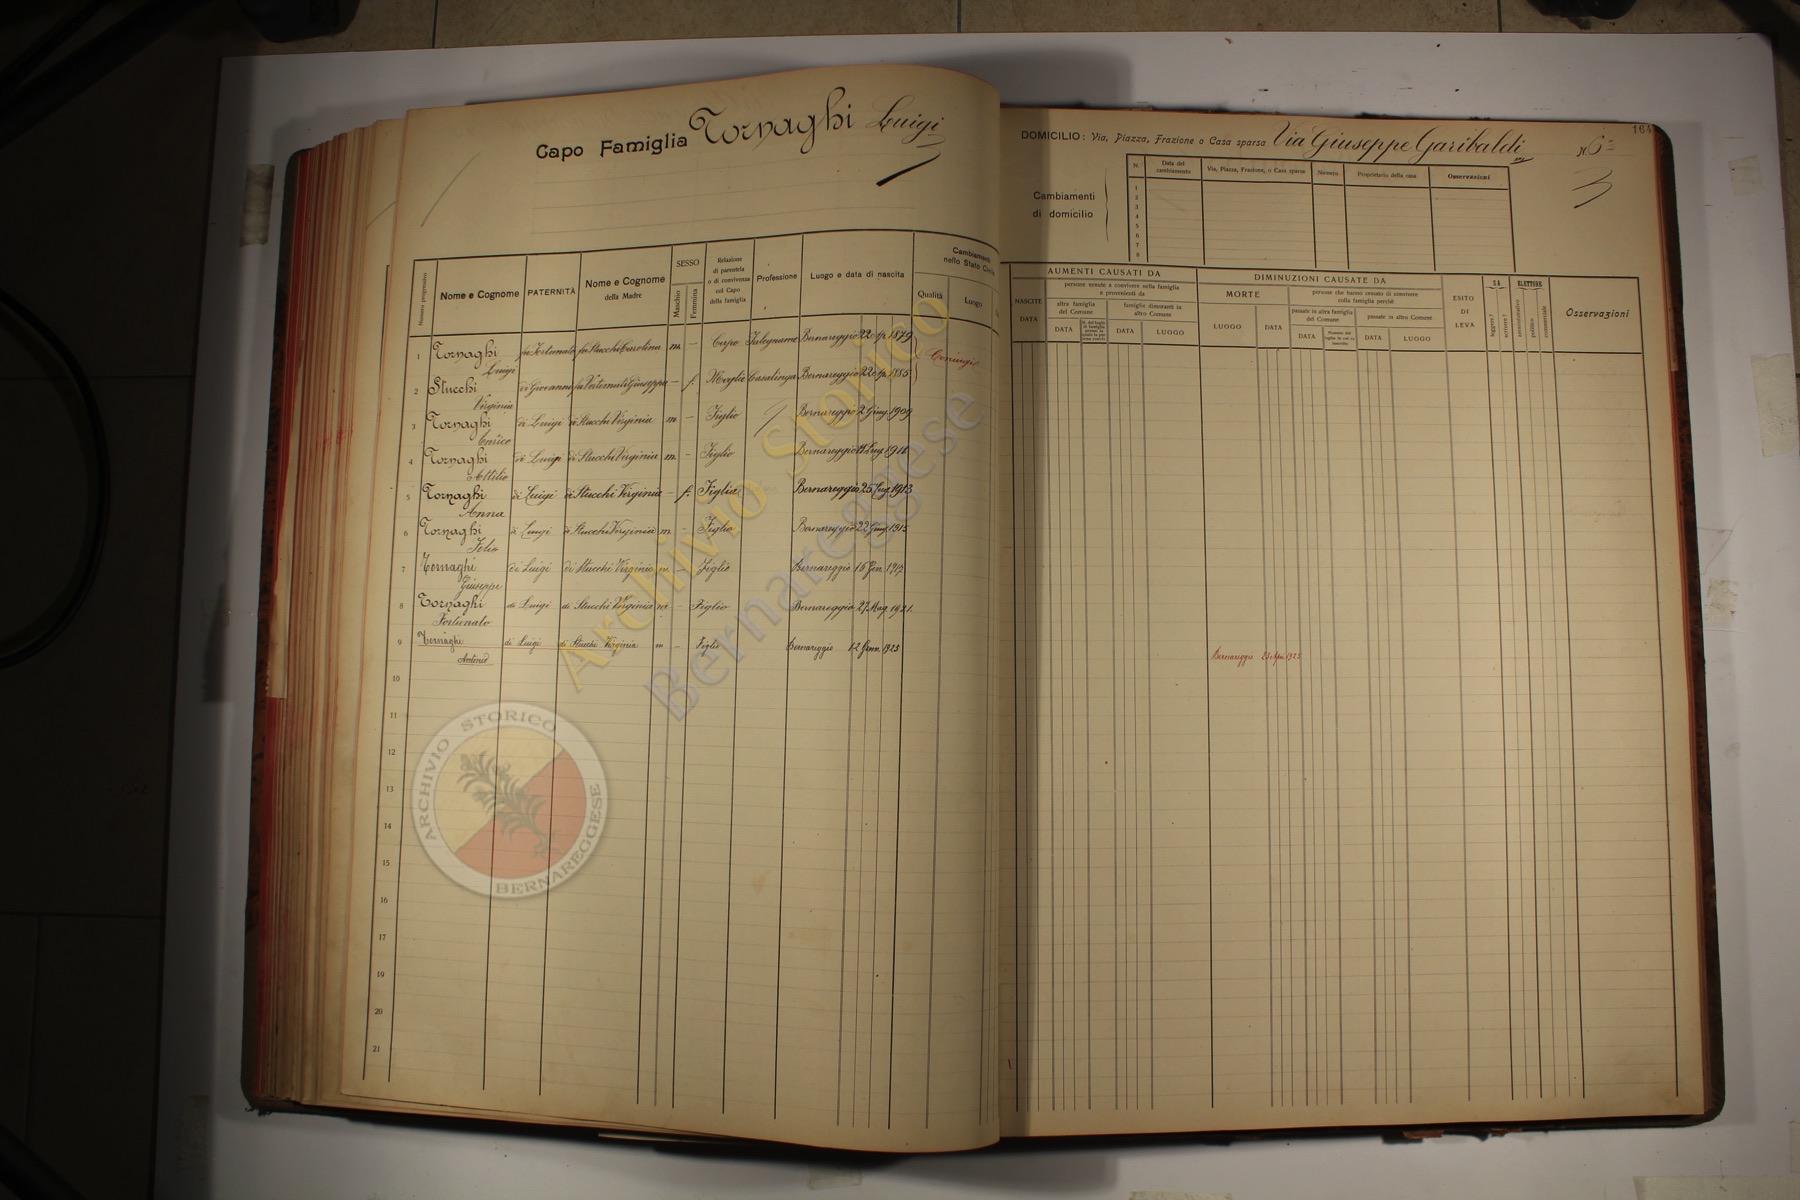 Capo Famiglia Tornaghi Luigi
164
DOMICILIO: Via, Piazza, Frazione o Casa sparsa Via Giuseppe Garibaldi N. 6
Cambiamenti
di domicilio
N. Data del cambiamento Via, Piazza, Frazione, o Casa sparsa Numero Proprietario della casa Osservazioni
1
2
3
4
5
6
7
8
Numero progressivo
Nome e Cognome
PATERNITÀ
Nome e Cognome
della Madre
SESSO
Maschio
Femmina
Relazione
di parentela
o di convivenza
col Capo
della famiglia
Professione
Luogo e data di nascita
Cambiamenti
nello Stato Civile
Qualità
Luogo
NASCITE
DATA
AUMENTI CAUSATI DA
persone venute a convivere nella famiglia
e provenienti da
altra famiglia
del Comune
famiglie dimoranti in
altro Comune
DATA
DATA
LUOGO
DIMINUZIONI CAUSATE DA
MORTE
LUOGO
DATA
persone che hanno cessato di convivere
colla famiglia perchè
passate in altra famiglia
del Comune
passate in altro Comune
DATA
DATA
LUOGO
ESITO
DI
LEVA
SA
leggere?
scrivere?
ELETTORE
amministrativo
politico
commerciale
Osservazioni
1 Tornaghi Luigi fu Fortunato fu Stucchi Carolina m. – Capo Falegname Bernareggio 22 1879 Coniugi
2 Stucchi Virginia di Giovanni fu Giuseppa – f. Moglie Casalinga Bernareggio 22 1885
3 Tornaghi Enrico di Luigi di Stucchi Virginia m. – Figlio Bernareggio 2 Giug. 1909
4 Tornaghi Attilio di Luigi di Stucchi Virginia m. – Figlio Bernareggio 1911
5 Tornaghi Anna di Luigi di Stucchi Virginia – f. Figlia Bernareggio 25 1913
6 Tornaghi di Luigi di Stucchi Virginia m. – Figlio Bernareggio 22 Giug. 1915
7 Tornaghi Giuseppe di Luigi di Stucchi Virginia m. – Figlio Bernareggio 16 Gen.
8 Tornaghi Fortunato di Luigi di Stucchi Virginia m – Figlio Bernareggio 27 Mag. 1921.
9 Tornaghi Antonio di Luigi di Stucchi Virginia m – Figlio Bernareggio 12 Genn. 1925 Bernareggio 1925
10
11
12
13
14
15
16
17
19
20
21
Archivio Storico
Bernareggese
ARCHIVIO STORICO
BERNAREGGESE